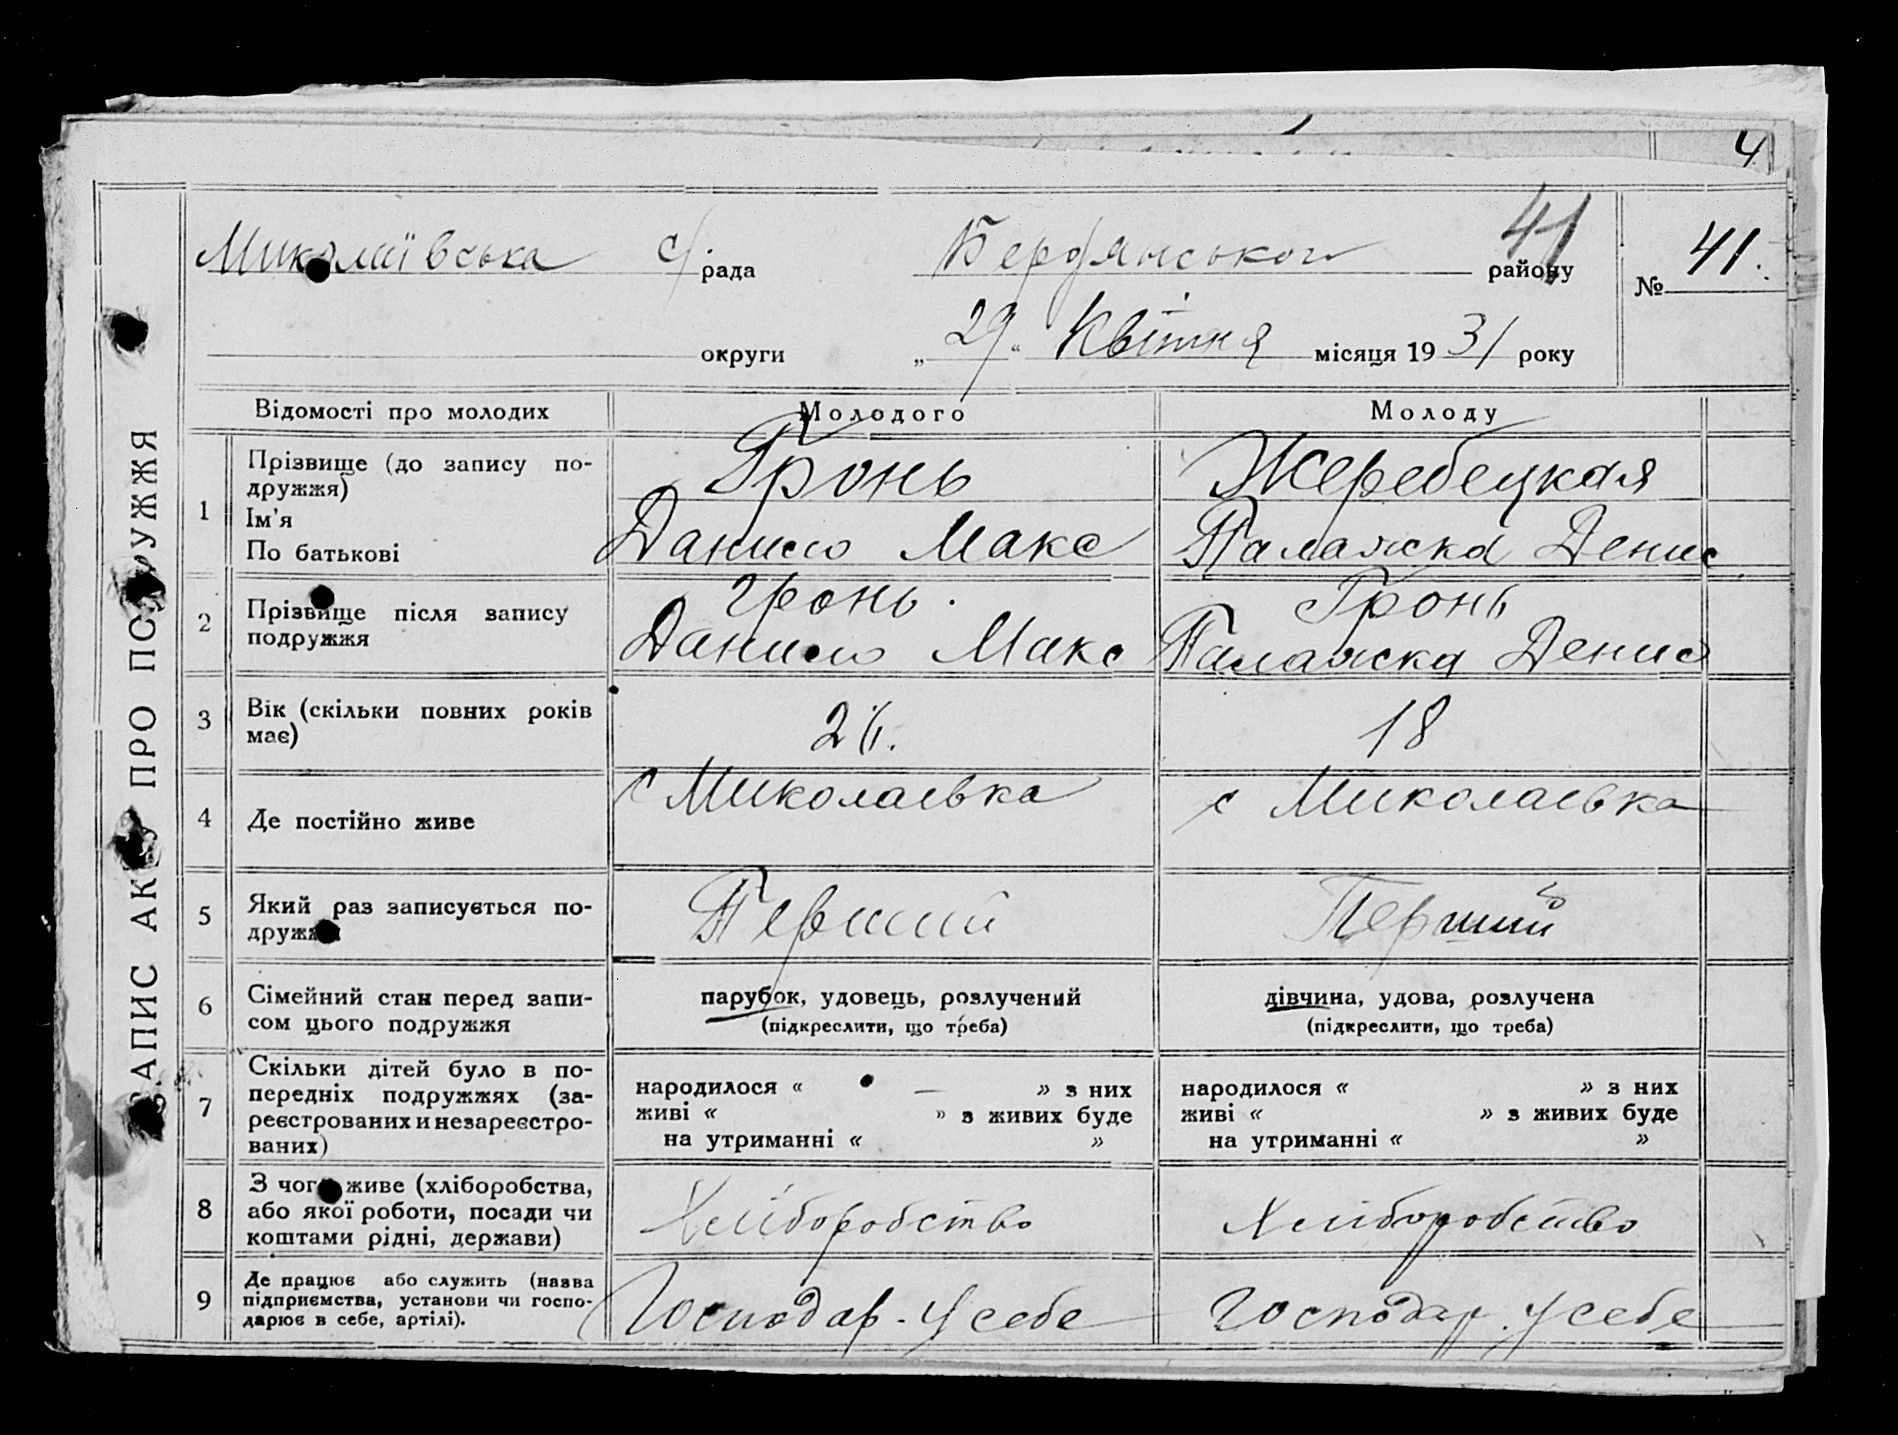 4
41
Миколаївська с/. рада Бердянського району № 41.
округи „ 29 “ Квітня місяця 1931 року
ЗАПИС АКТУ ПРО ПОДРУЖЖЯ
Відомості про молодих Молодого Молоду
1 Прізвище (до запису по-
дружжя) Гронь Жеребецкая
Ім'я
По батькові Данило Макс Палажка Денис
2 Прізвище після запису
подружжя Гронь. Гронь
Данило Макс Палажка Денис
3 Вік (скільки повних років
має) 18
4 Де постійно живе с Миколаевка с Миколаевка
5 Який раз записується по-
дружжя Перший Перший
6 Сімейний стан перед запи-
сом цього подружжя
парубок, удовець, розлучений
(підкреслити, що треба)
дівчина, удова, розлучена
(підкреслити, що треба)
7 Скільки дітей було в по-
передніх подружжях (за-
реєстрованих и незареєстро-
ваних)
народилося « — » з них
живі « » з живих буде
на утриманні « »
народилося « » з них
живі « » з живих буде
на утриманні « »
8 З чого живе (хліборобства,
або якої роботи, посади чи
коштами рідні, держави)
Хліборобство Хліборобство
9 Де працює або служить (назва
підприємства, установи чи госпо-
дарює в себе, артілі).
Господар. у себе Господар. у себе